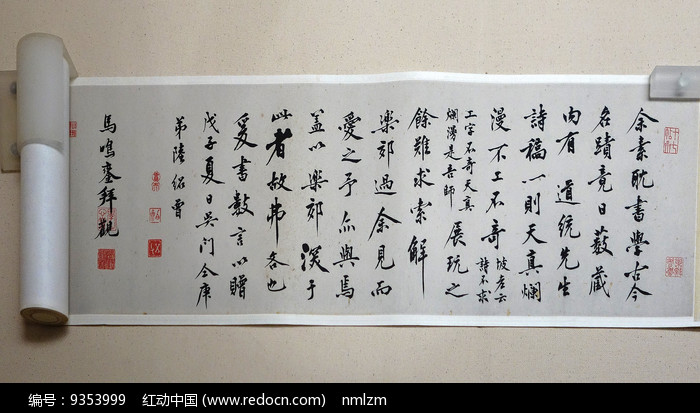 余素耽書學古今
名蹟竟日蔽藏
内有 道統先生
詩稿一則天真爛
漫不工不奇 坡老云
詩不求
工字不奇天真
爛漫是吾師 展玩之
餘難求索解
樂郊過余見而
愛之予亦與焉
蓋以樂郊深于
此者故弗吝也
爰書數言以贈
戊子夏日吳门令庚
弟陸紹曹
馬鳴鑾拜觀
编号：9353999 红动中国 (www.redocn.com) nmlzm